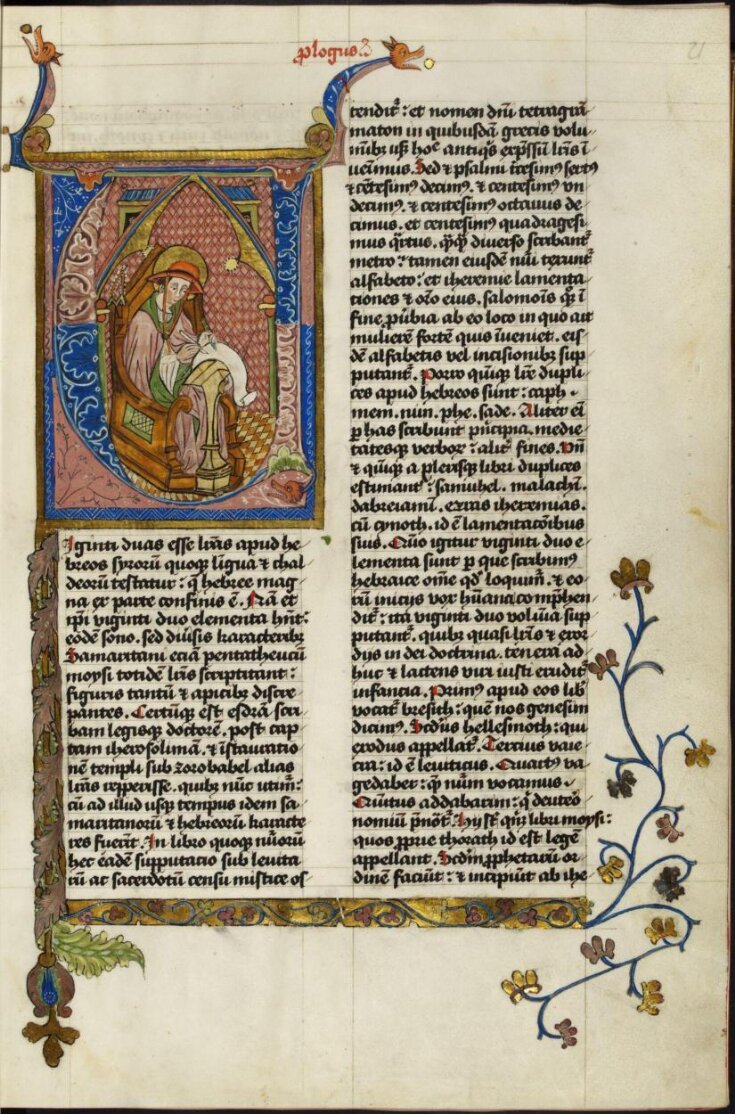 ꝓlogus
21
Iginti duas esse lr̄as apud he
breos syroꝝ quoqꝫ lingua ⁊ chal
deoꝝ testatur : q̄ hebree mag
na ex parte confinis ē . Nā et
ip̄i viginti duo elementa hn̄t :
eodē sono . sed diūsis karacteribꝫ
Samaritani eciā pentatheucū
moysi totidē lr̄is scriptitant :
figuris tantū ⁊ apicibꝫ discre
pantes . Certūqꝫ est esdrā scri
bam legisqꝫ doctorē . post cap
tam iherosolimā . ⁊ īstauratio
nē templi sub zorobabel alias
lr̄as repperisse . quibꝫ nūc utim̄ :
cū ad illud usqꝫ tempus idem sa
maritanoꝝ ⁊ hebreoꝝ karacte
res fuerīt . In libro quoqꝫ nūoꝝ
hec eadē supputacio sub levita
ꝝ ac sacerdotū censu mistice os
tendit̄ : et nomen dn̄i tetragrā
maton in quibusdā grecis volu
minibꝫ usqꝫ hodie antiqis exp̄ssū lr̄is ī
uenimus . Sed ⁊ psalmi tricesimꝰ sextꝰ
⁊ cētesimꝰ decimꝰ . ⁊ centesimꝰ vn
decimꝰ . ⁊ centesimꝰ octauus de
cimus . et centesimꝰ quadragesi
mus qrtus . q̄qꝫ diuerso scribant̄
metro : tamen eiusdē nūi texunt̄
alfabeto : et iheremie lamenta
tiones ⁊ or̄o eius . salomoīs qꝫ ī
fine ꝓūbia ab eo loco in quo ait
mulierē fortē quis īueniet . eis
dē alfabetis vel incisionibꝫ sup
putant̄ . Porro quīqꝫ lr̄e dupli
ces apud hebreos sunt : caph .
mem . nun . phe . sade . Aliter ei
ꝑ has scribunt pͥncipia . medie
tatesqꝫ verboꝝ : alit̄ fines . Vn̄
⁊ quīqꝫ a plerisqꝫ libri duplices
estimant̄ : samuhel . malachī .
dabreiamī . ezras iheremias .
cū cynoth . id ē lamentacōibus
suis . Quō igitur viginti duo e
lementa sunt ꝑ que scribimꝰ
hebraice om̄e qd̄ loquim̄ . ⁊ eo
ꝝ iniciis vox hūana comp̄hen
dit̄ : ita viginti duo volūia sup
putant̄ . quibꝫ quasi lr̄is ⁊ exor
dijs in dei doctrina . tenera ad
huc ⁊ lactens viri iusti erudit̄
infancia . Primꝰ apud eos lib̄
vocat̄ bresith : quē nos genesim
dicimꝰ . Scd̄us hellesmoth : qui
exodus appellat̄ . Tercius vaie
cra : id ē leuiticus . Quartꝰ va
gedaber : q̄ nūm vocamus .
Quītus addabarim : q̄ deutō
nomiū p̄not̄ . Hij sūt qīqꝫ libri moysi :
quos ꝓprie thorath id est legē
appellant . Scd̄m ꝓphetarū or
dinē faciūt : ⁊ incipiūt ab ihe